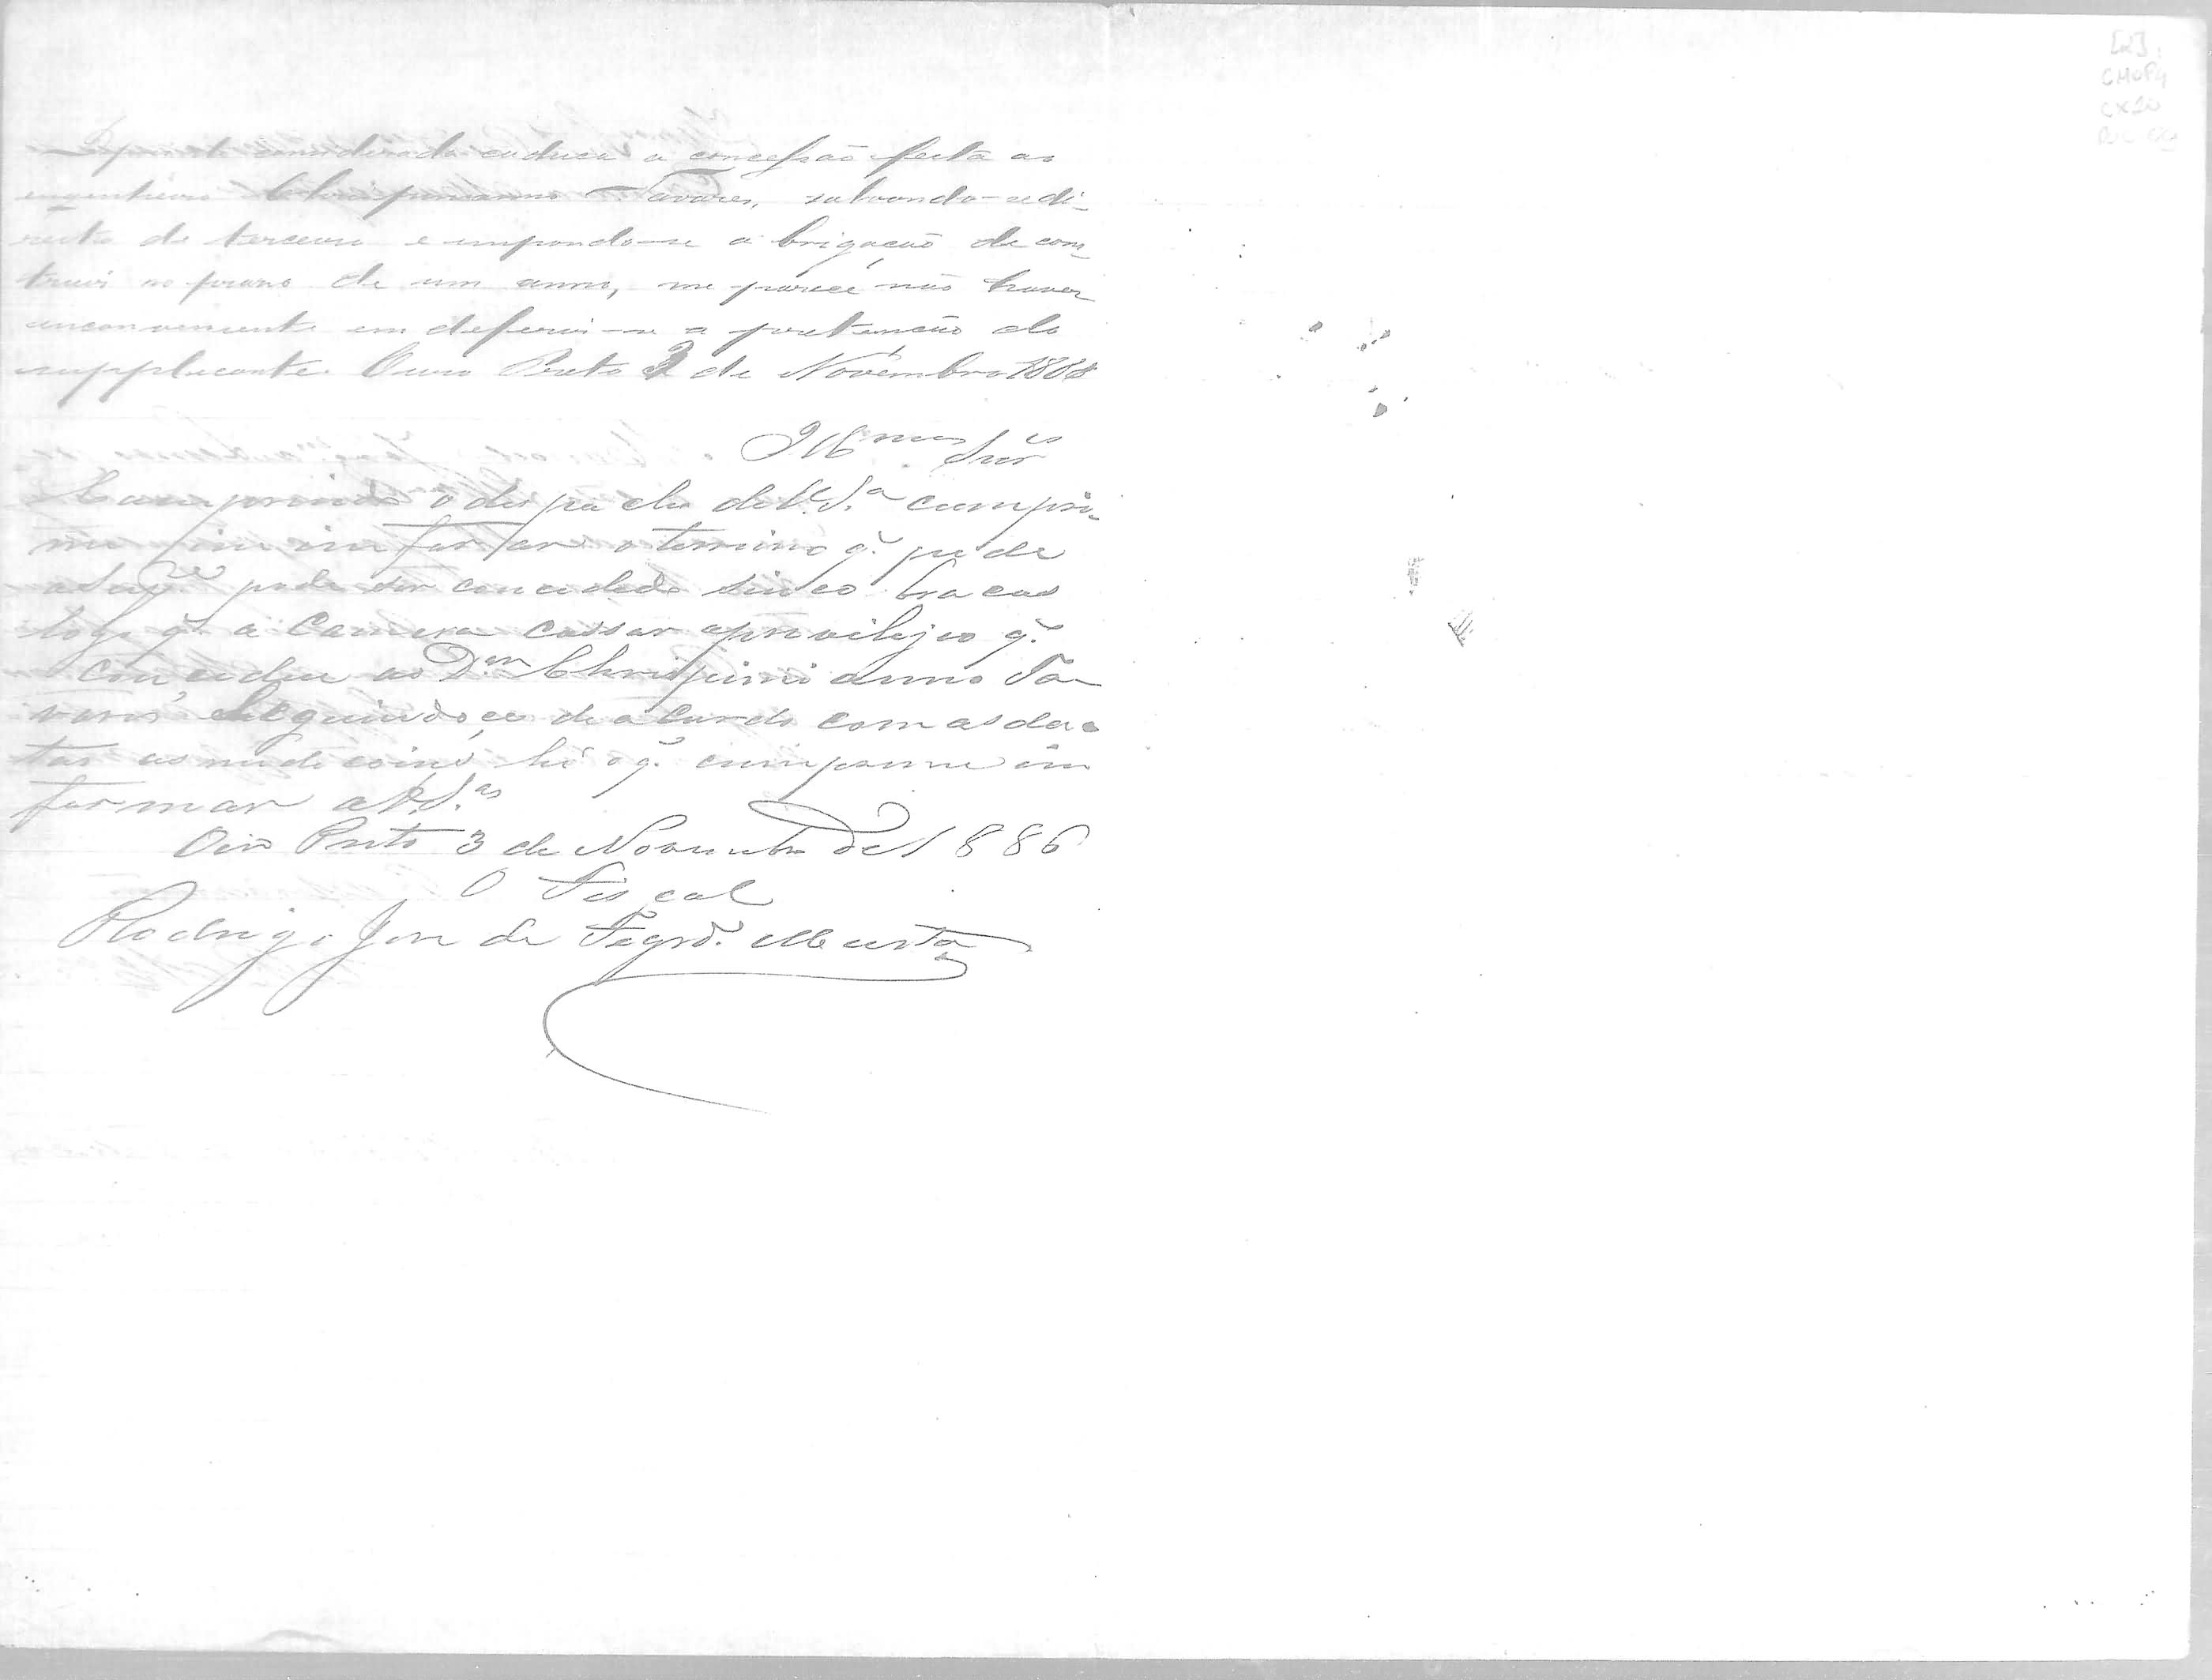 considerada caduca a concessão feita ao
engenheiro Chrispiniano Tavares, salvando-se di-
reito de terceiro e impondo-se a brigação de cons
truir no praso de um anno, me parece não haver
inconveniente em deferir-se a pretenção do
supplicante. Ouro Preto 2 de Novembro 1886
Illmos Snrs
Cumprindo o despacho de V. S.a cumpri-
me informar o terreno q. pede
o Supe pode ser concedido sinco bracas
logo q. a Camera cassar a previlejeo q.
concedeu ao Dor Chrispiniano Ta
vares de acurdo com as da
tas hé o q. cumpreme in
formar a V. S.as
Oiro Preto 3 de Novembro de 1886
O Fiscal
Rodrigo José de Figrdo Murta
[2]
CMOP4
CX10